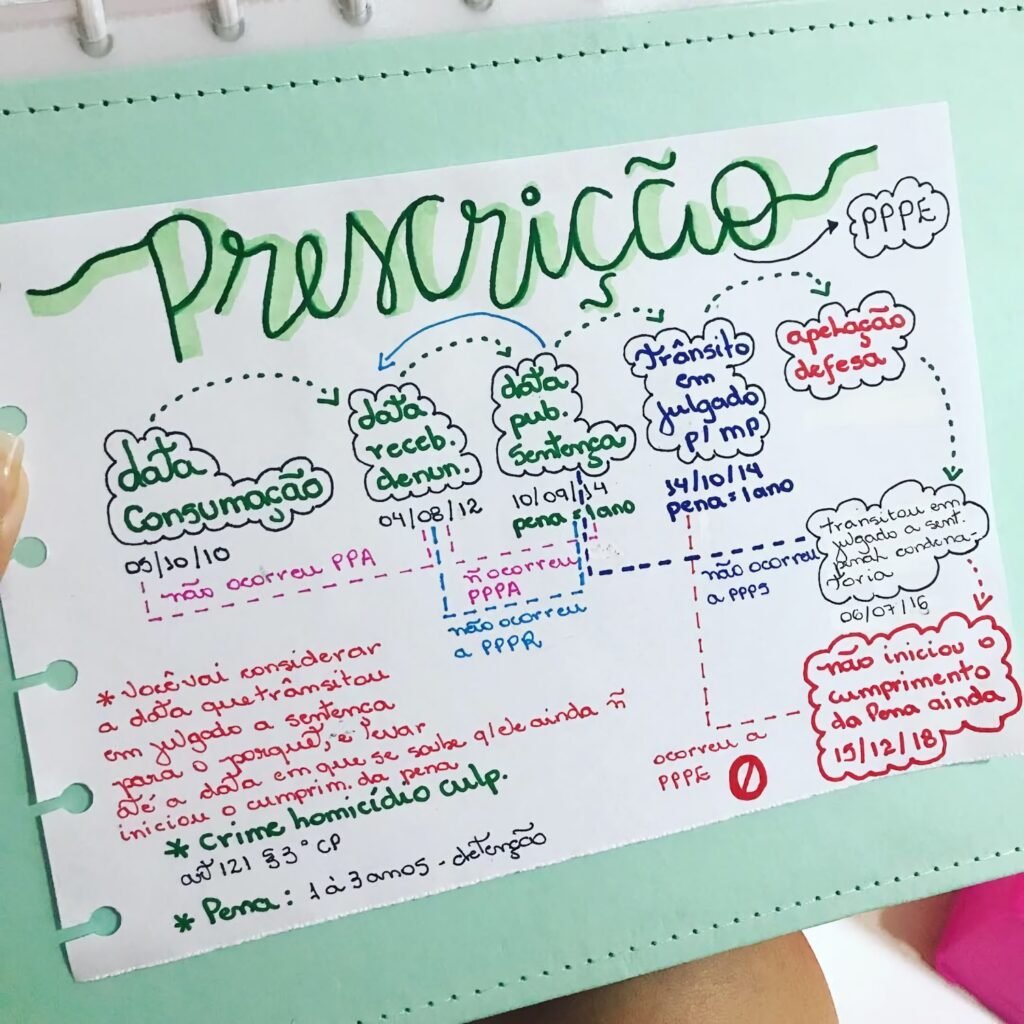 Prescrição
PPPE
data
consumação
05/10/10
data
receb.
denun.
04/08/12
data
pub.
sentença
10/09/14
pena = 1 ano
trânsito
em
julgado
p/ mp
14/10/14
pena = 1 ano
apelação
defesa
transitou em
julgado a sent.
penal condena-
toria
06/07/16
não iniciou o
cumprimento
da Pena ainda
15/12/18
não ocorreu PPA
ñ ocorreu
PPPA
não ocorreu
a PPPR
não ocorreu
a PPPS
ocorreu a
PPPE
* Você vai considerar
a data que trânsitou
em julgado a sentença
para o porquê, e levar
até a data em que se soube q/ ele ainda ñ
iniciou o cumprim. da pena
* Crime homicídio culp.
art 121 §3° CP
* Pena: 1 à 3 anos - detenção